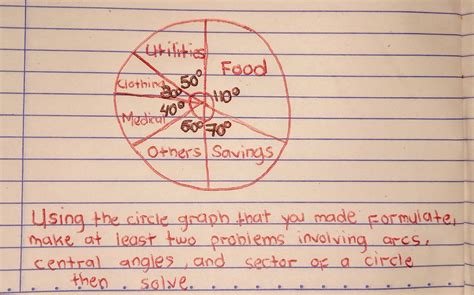 Utilities
Food
Clothing
50°
30°
110°
40°
Medical
60° 70°
Others Savings
Using the circle graph that you made formulate,
make at least two problems involving arcs,
central angles, and sector of a circle
then solve.